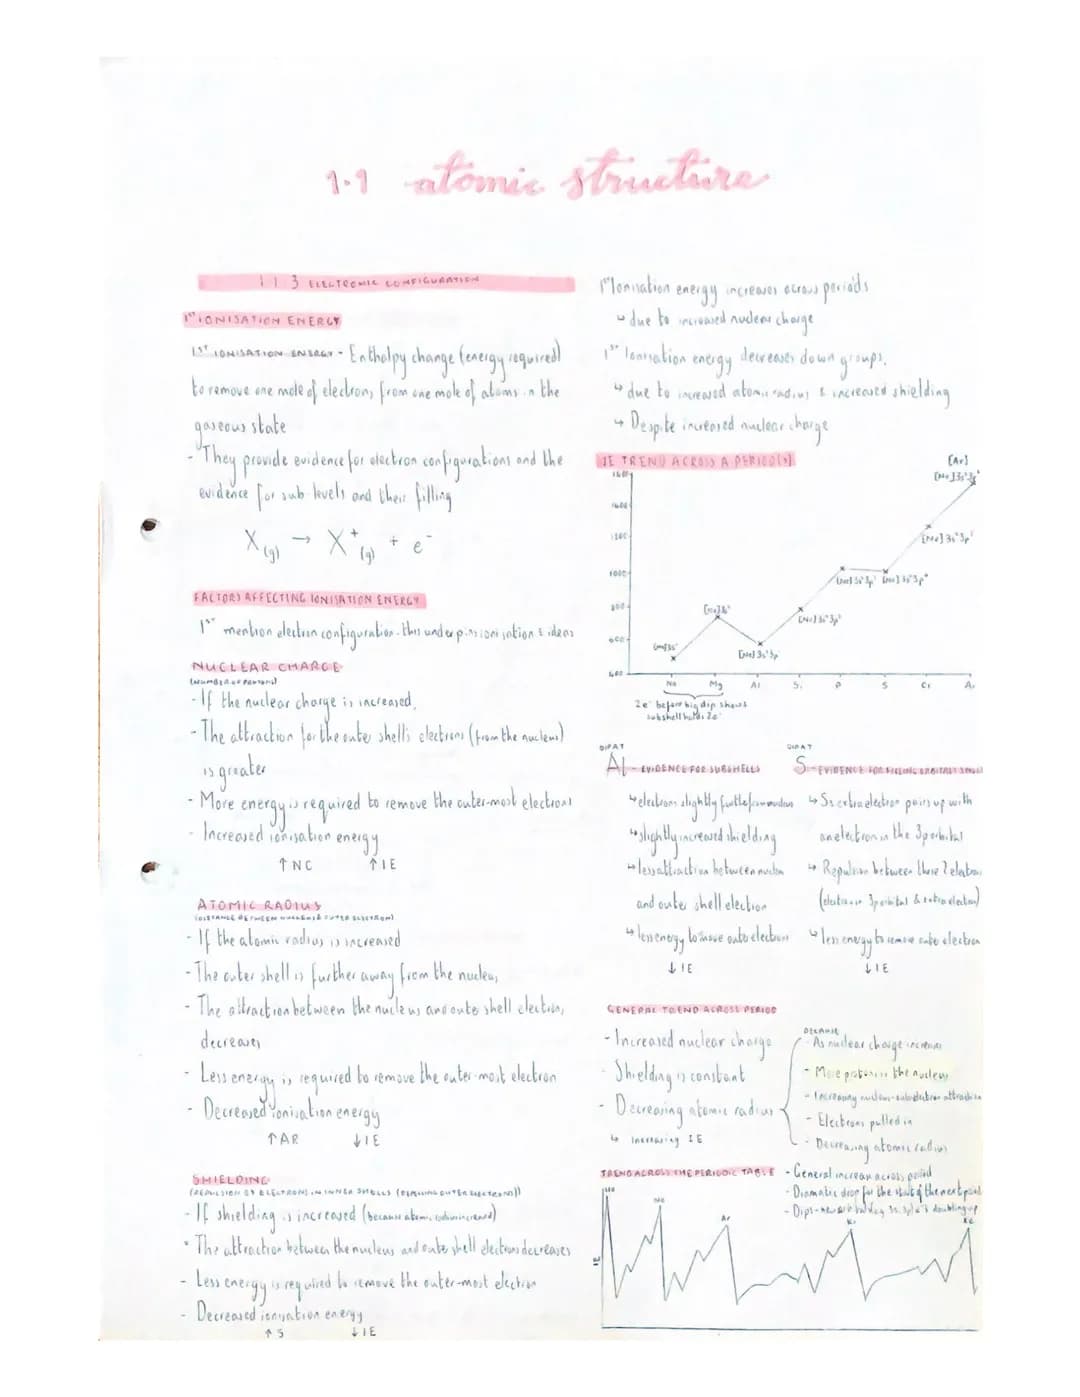 1.1 atomic structure
1.1.3 ELECTRONIC CONFIGURATION
1ST IONISATION ENERGY
1ST IONISATION ENERGY - Enthalpy change (energy required)
to remove one mole of electrons from one mole of atoms in the
gaseous state
- They provide evidence for electron configurations and the
evidence for sub levels and their filling
X(g) → X+(g) + e-
FACTORS AFFECTING IONISATION ENERGY
1st mention electron configuration - this underpins ionisation E ideas
NUCLEAR CHARGE
(NUMBER OF PROTONS)
- If the nuclear charge is increased,
- The attraction for the outer shell's electrons (from the nucleus)
is greater
- More energy is required to remove the outer-most electrons
- Increased ionisation energy
↑NC ↑IE
ATOMIC RADIUS
(DISTANCE BETWEEN NUCLEUS & OUTER ELECTRON)
- If the atomic radius is increased
- The outer shell is further away from the nucleus
- The attraction between the nucleus and outer shell electrons
decreases
- Less energy is required to remove the outer-most electron
- Decreased ionisation energy
↑AR ↓IE
SHIELDING
(REPULSION OF ELECTRONS IN INNER SHELLS
- If shielding is increased (because atomic radius increased)
- The attraction between the nucleus and outer shell electrons decreases
- Less energy is required to remove the outer-most electron
- Decreased ionisation energy
↑S ↓IE
1st Ionisation energy increases across periods
↳ due to increased nuclear charge
1st Ionisation energy decreases down groups.
↳ due to increased atomic radius & increased shielding
↳ Despite increased nuclear charge
IE TREND ACROSS A PERIOD(3)
[Ar]
1400
1200
1000
800
600
400
[Ne]3s¹
[Ne]3s²
Na Mg Al Si P S Cl Ar
2e- before big dip shows
subshell holds 2e-
DIP AT
Al - EVIDENCE FOR SUBSHELLS
↳ electrons slightly further from nucleus
↳ slightly increased shielding
↳ less attraction between nucleus
and outer shell electron
↳ less energy to remove outer electron
↓IE
DIP AT
S - EVIDENCE FOR FILLING ORBITALS SINGLY
↳ S's extra electron pairs up with
an electron in the 3p orbital
↳ Repulsion between these 2 electrons
(electron in 3p orbital & extra electron)
↳ less energy to remove outer electron
↓IE
GENERAL TREND ACROSS PERIOD
- Increased nuclear charge
- Shielding is constant
- Decreasing atomic radius
↳ Increasing IE
BECAUSE
- As nuclear charge increases
- More protons in the nucleus
- Increasing nucleus-outer electron attraction
- Electrons pulled in
- Decreasing atomic radius
TREND ACROSS THE PERIODIC TABLE
- General increase across period
- Dramatic drop for the start of the next period
IE
He
Ne
Ar
Kr
Xe